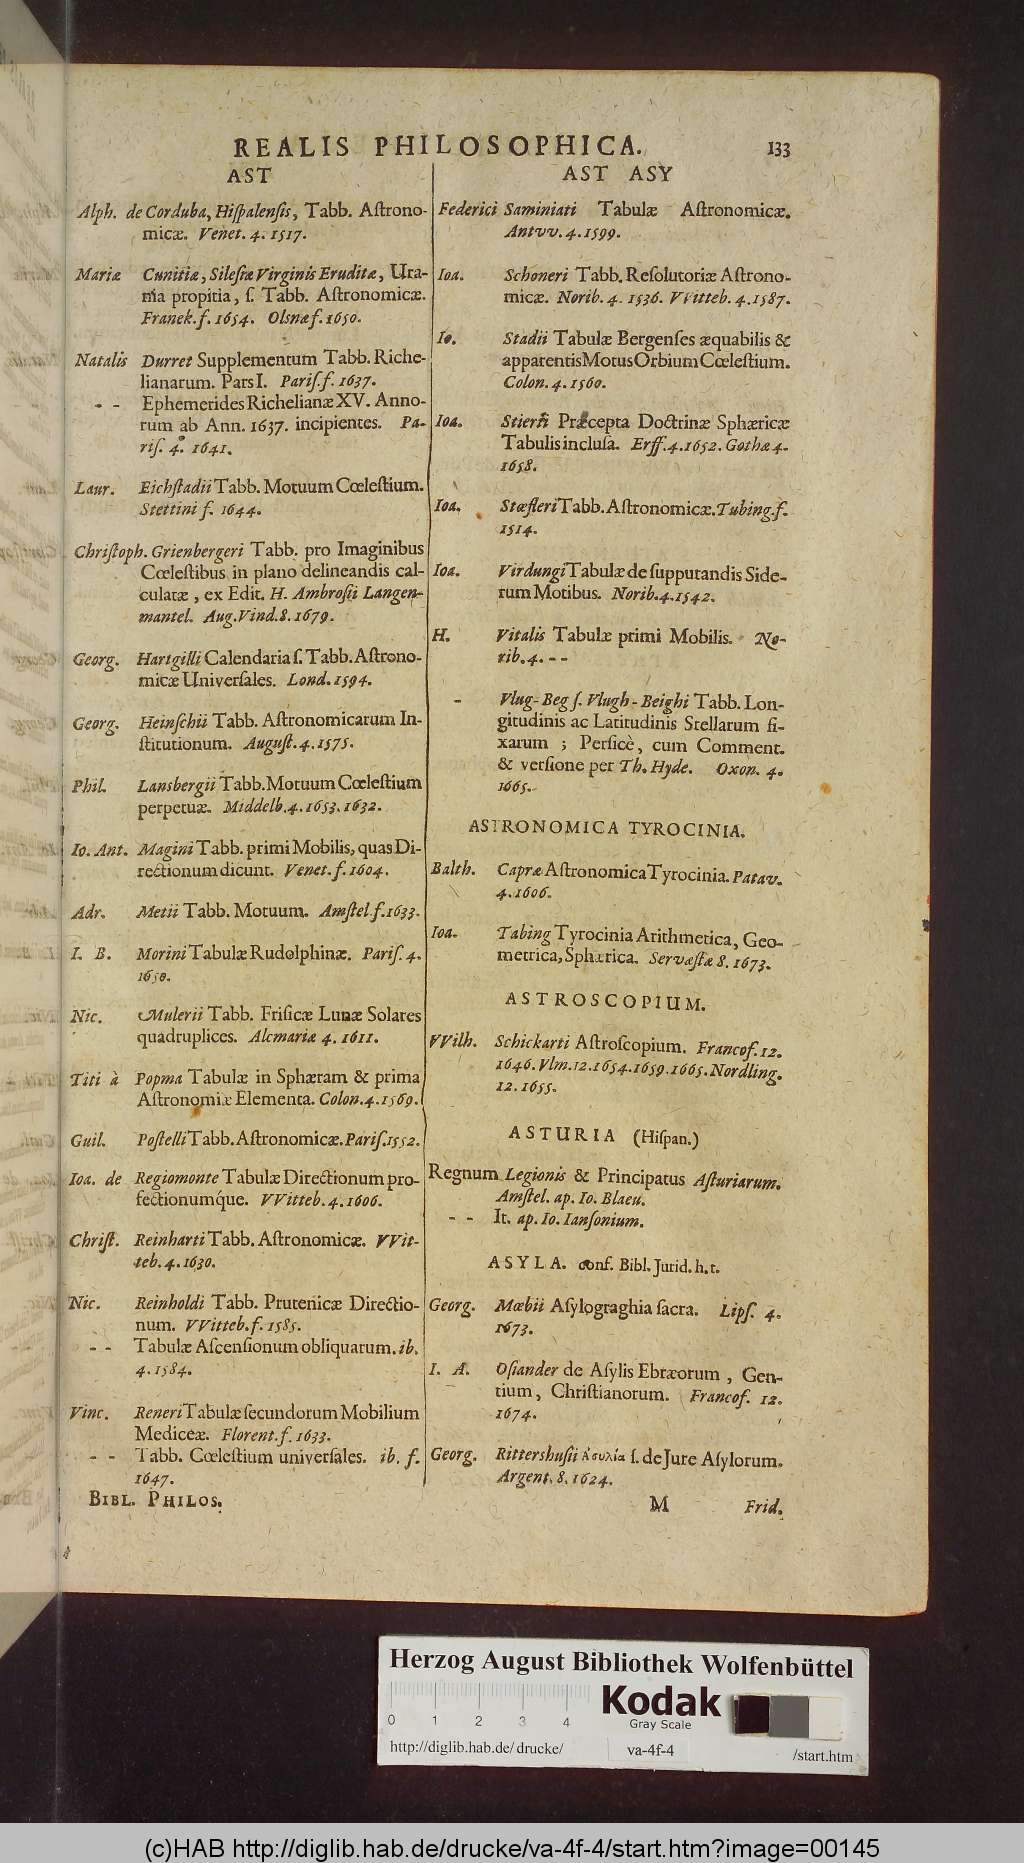 REALIS PHILOSOPHICA. 133
AST
Alph. de Corduba, Hiſpalenſis, Tabb. Aſtrono-
micæ. Venet. 4. 1517.
Mariæ Cunitiæ, Sileſiæ Virginis Eruditæ, Ura-
nia propitia, ſ. Tabb. Aſtronomicæ.
Franek. f. 1654. Olsnæ f. 1650.
Natalis Durret Supplementum Tabb. Riche-
lianarum. Pars I. Pariſ. f. 1637.
- - Ephemerides Richelianæ XV. Anno-
rum ab Ann. 1637. incipientes. Pa-
riſ. 4. 1641.
Laur. Eichſtadii Tabb. Motuum Cœleſtium.
Stettini f. 1644.
Chriſtoph. Grienbergeri Tabb. pro Imaginibus
Cœleſtibus in plano delineandis cal-
culatæ, ex Edit. H. Ambroſii Langen-
mantel. Aug. Vind. 8. 1679.
Georg. Hartgilli Calendaria ſ. Tabb. Aſtrono-
micæ Univerſales. Lond. 1594.
Georg. Heinſchii Tabb. Aſtronomicarum In-
ſtitutionum. Auguſt. 4. 1575.
Phil. Lansbergii Tabb. Motuum Cœleſtium
perpetuæ. Middelb. 4. 1653. 1632.
Io. Ant. Magini Tabb. primi Mobilis, quas Di-
rectionum dicunt. Venet. f. 1604.
Adr. Metii Tabb. Motuum. Amſtel. f. 1633.
I. B. Morini Tabulæ Rudolphinæ. Pariſ. 4.
1650.
Nic. Mulerii Tabb. Friſicæ Lunæ Solares
quadruplices. Alcmariæ 4. 1611.
Titi à Popma Tabulæ in Sphæram & prima
Aſtronomiæ Elementa. Colon. 4. 1569.
Guil. Poſtelli Tabb. Aſtronomicæ. Pariſ. 1552.
Ioa. de Regiomonte Tabulæ Directionum pro-
fectionumq́ue. VVitteb. 4. 1606.
Chriſt. Reinharti Tabb. Aſtronomicæ. VVit-
teb. 4. 1630.
Nic. Reinholdi Tabb. Prutenicæ Directio-
num. VVitteb. f. 1585.
- - Tabulæ Aſcenſionum obliquarum. ib.
4. 1584.
Vinc. Reneri Tabulæ ſecundorum Mobilium
Mediceæ. Florent. f. 1633.
- - Tabb. Cœleſtium univerſales. ib. f.
1647.
BIBL. PHILOS.
AST ASY
Federici Saminiati Tabulæ Aſtronomicæ.
Antvv. 4. 1599.
Ioa. Schoneri Tabb. Reſolutoriæ Aſtrono-
micæ. Norib. 4. 1536. VVitteb. 4. 1587.
Io. Stadii Tabulæ Bergenſes æquabilis &
apparentis Motus Orbium Cœleſtium.
Colon. 4. 1560.
Ioa. Stierii Præcepta Doctrinæ Sphæricæ
Tabulis incluſa. Erff. 4. 1652. Gothæ 4.
1658.
Ioa. Stœfleri Tabb. Aſtronomicæ. Tubing. f.
1514.
Ioa. Virdungi Tabulæ de ſupputandis Side-
rum Motibus. Norib. 4. 1542.
H. Vitalis Tabulæ primi Mobilis. No-
rib. 4. - -
- Vlug-Beg ſ. Vlugh-Beighi Tabb. Lon-
gitudinis ac Latitudinis Stellarum fi-
xarum; Perſicè, cum Comment.
& verſione per Th. Hyde. Oxon. 4.
1665.
ASTRONOMICA TYROCINIA.
Balth. Capræ Aſtronomica Tyrocinia. Patav.
4. 1606.
Ioa. Tabing Tyrocinia Arithmetica, Geo-
metrica, Sphærica. Servæſtæ 8. 1673.
ASTROSCOPIUM.
VVilh. Schickarti Aſtroſcopium. Francof. 12.
1646. Vlm. 12. 1654. 1659. 1665. Nordling.
12. 1655.
ASTURIA (Hiſpan.)
Regnum Legionis & Principatus Aſturiarum.
Amſtel. ap. Io. Blaeu.
- - It. ap. Io. Ianſonium.
ASYLA. conf. Bibl. Jurid. h. t.
Georg. Mœbii Aſylograghia ſacra. Lipſ. 4.
1673.
I. A. Oſiander de Aſylis Ebræorum, Gen-
tium, Chriſtianorum. Francof. 12.
1674.
Georg. Rittershuſii Ἀσυλία ſ. de Jure Aſylorum.
Argent. 8. 1624.
M Frid.
Herzog August Bibliothek Wolfenbüttel
Kodak
Gray Scale
0 1 2 3 4
http://diglib.hab.de/drucke/ va-4f-4 /start.htm
(c)HAB http://diglib.hab.de/drucke/va-4f-4/start.htm?image=00145